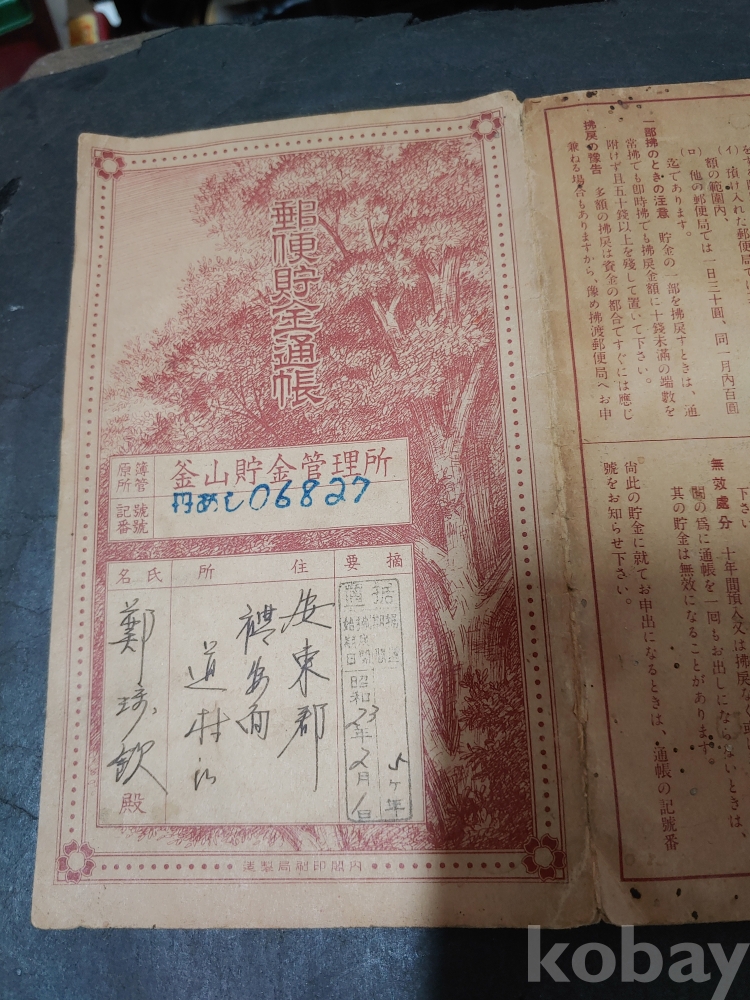 郵便貯金通帳
原簿所管
釜山貯金管理所
記號番號
丹めし06827
摘要
住所
氏名
据置
昭和23年2月1日
5ヶ年
安東郡
禮安面
道村洞
鄭琦欽殿
内閣印刷局製造
(イ) 預け入れた郵便局
額の範圍内、
(ロ) 他の郵便局では一日三十圓、同一月内百圓
迄であります。
一部拂のときの注意 貯金の一部を拂戻すときは、通
常拂でも即時拂でも拂戻金額に十錢未滿の端數を
附けず且五十錢以上を殘して置いて下さい。
拂戻の豫告 多額の拂戻は資金の都合ですぐには應じ
兼ねる場合もありますから、豫め拂渡郵便局へお申
下さい
無效處分 十年間預入又は拂戻
の爲に通帳を一回もお出しにならないときは、
其の貯金は無效になることがあります。
尚此の貯金に就てお申出になるときは、通帳の記號番
號をお知らせ下さい。
kobay